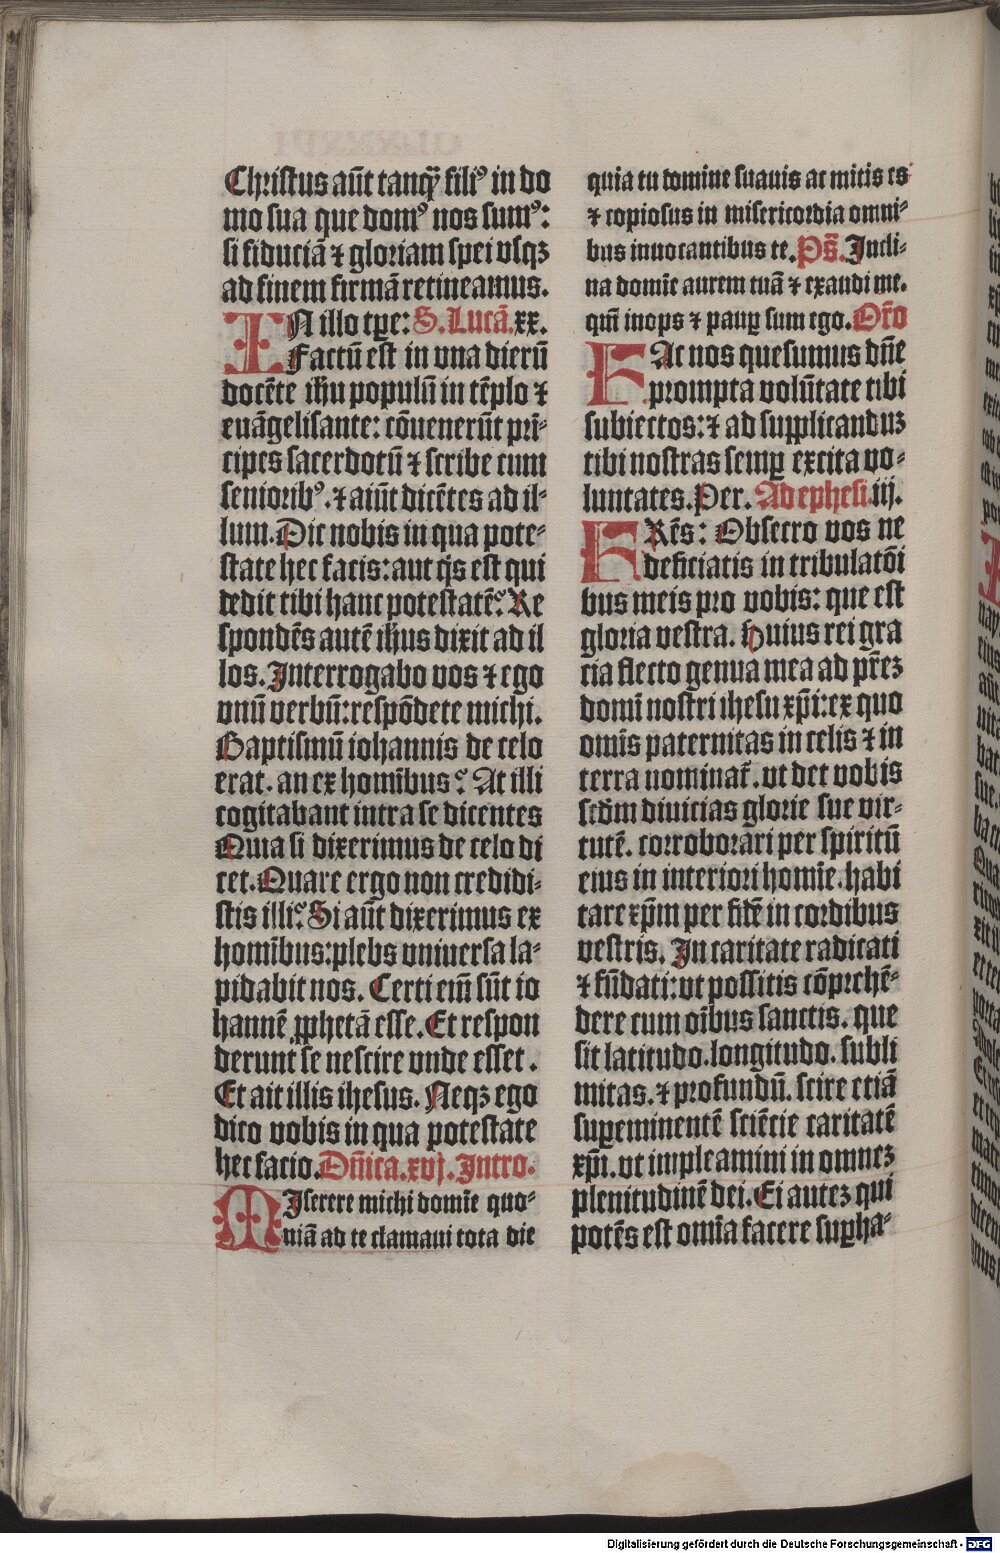 Christus aūt tanqȝ filiꝰ in do
mo sua que domꝰ nos sumꝰ:
si fiduciā ⁊ gloriam spei vsqȝ
ad finem firmā retineamus.
IN illo tꝑe: S. Lucā. xx.
Factū est in vna dierū
docēte ihū populū in tēplo ⁊
euāgelisante: cōuenerūt prī-
cipes sacerdotū ⁊ scribe cum
senioribꝰ. ⁊ aiūt dicētes ad il-
lum. Dic nobis in qua pote-
state hec facis: aut q̄s est qui
dedit tibi hanc potestatē? Re
spondēs autē ihūs dixit ad il
los. Interrogabo vos ⁊ ego
vnū verbū: respōdete michi.
Baptismū iohannis de celo
erat. an ex homībus? At illi
cogitabant intra se dicentes
Quia si dixerimus de celo di
cet. Quare ergo non credidi-
stis illi? Si aūt dixerimus ex
homībus: plebs vniuersa la-
pidabit nos. Certi eīm sūt io
hannē ꝓphetā esse. Et respon
derunt se nescire vnde esset.
Et ait illis ihesus. Neqȝ ego
dico vobis in qua potestate
hec facio. Dn̄ica. xvj. Intro.
MIserere michi domīe quo-
niā ad te clamaui tota die
quia tu domine suauis ac mitis es
⁊ copiosus in misericordia omni-
bus inuocantibus te. Ps̄. Incli-
na domīe aurem tuā ⁊ exaudi me.
qm̄ inops ⁊ pauꝑ sum ego. Or̄o
FAc nos quesumus dn̄e
prompta volūtate tibi
subiectos: ⁊ ad supplicanduȝ
tibi nostras semꝑ excita vo-
luntates. Per. Ad ephesi. iij.
FRēs: Obsecro vos ne
deficiatis in tribulatōi
bus meis pro vobis: que est
gloria vestra. Huius rei gra
cia flecto genua mea ad pr̄eȝ
domī nostri ihesu xp̄i: ex quo
omīs paternitas in celis ⁊ in
terra nominat̄. vt det vobis
scd̄m diuicias glorie sue vir-
tutē. corroborari per spiritū
eius in interiori homīe. habi
tare xp̄m per fidē in cordibus
vestris. In caritate radicati
⁊ fūdati: vt possitis cōprehē-
dere cum oībus sanctis. que
sit latitudo. longitudo. subli
mitas. ⁊ profundū. scire etiā
suꝑeminentē sciētie caritatē
xp̄i. vt impleamini in omneȝ
plenitudinē dei. Ei auteȝ qui
potēs est omīa facere suꝑha-
Digitalisierung gefördert durch die Deutsche Forschungsgemeinschaft - DFG